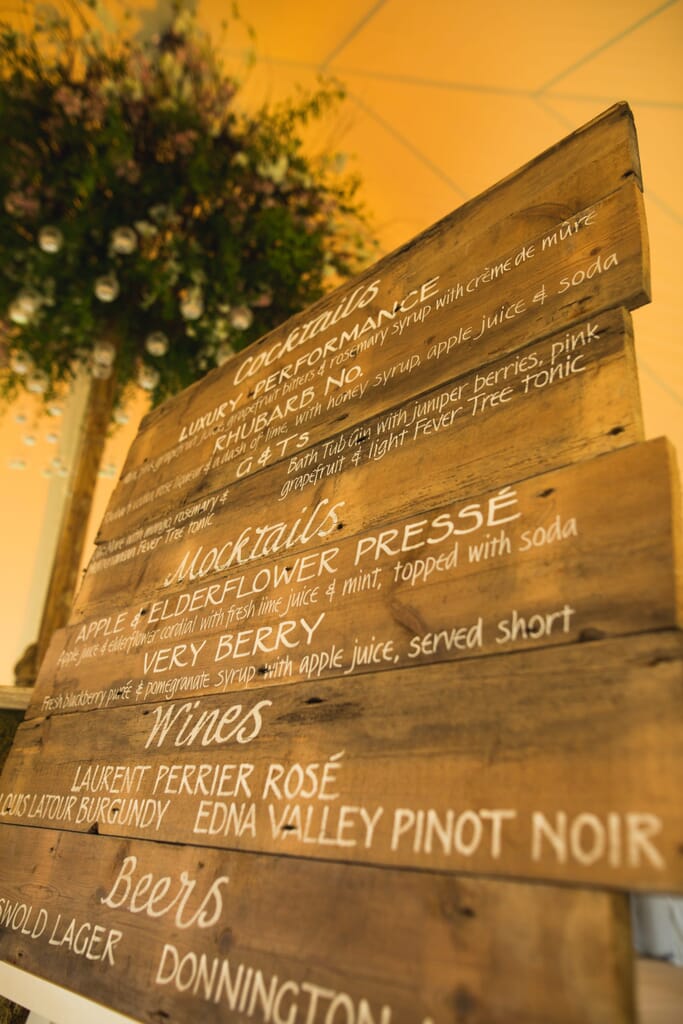 Cocktails
LUXURY PERFORMANCE
pink grapefruit juice, grapefruit bitters & rosemary syrup with crème de mûre
RHUBARB NO.
vodka, rose liqueur & a dash of lime, with honey syrup, apple juice & soda
G & TS
with rosemary &
Fever Tree tonic
Bath Tub Gin with juniper berries, pink
grapefruit & light Fever Tree tonic
Mocktails
APPLE & ELDERFLOWER PRESSÉ
Apple juice & elderflower cordial with fresh lime juice & mint, topped with soda
VERY BERRY
Fresh blackberry purée & pomegranate syrup with apple juice, served short
Wines
LAURENT PERRIER ROSÉ
LOUIS LATOUR BURGUNDY EDNA VALLEY PINOT NOIR
Beers
SWOLD LAGER DONNINGTON